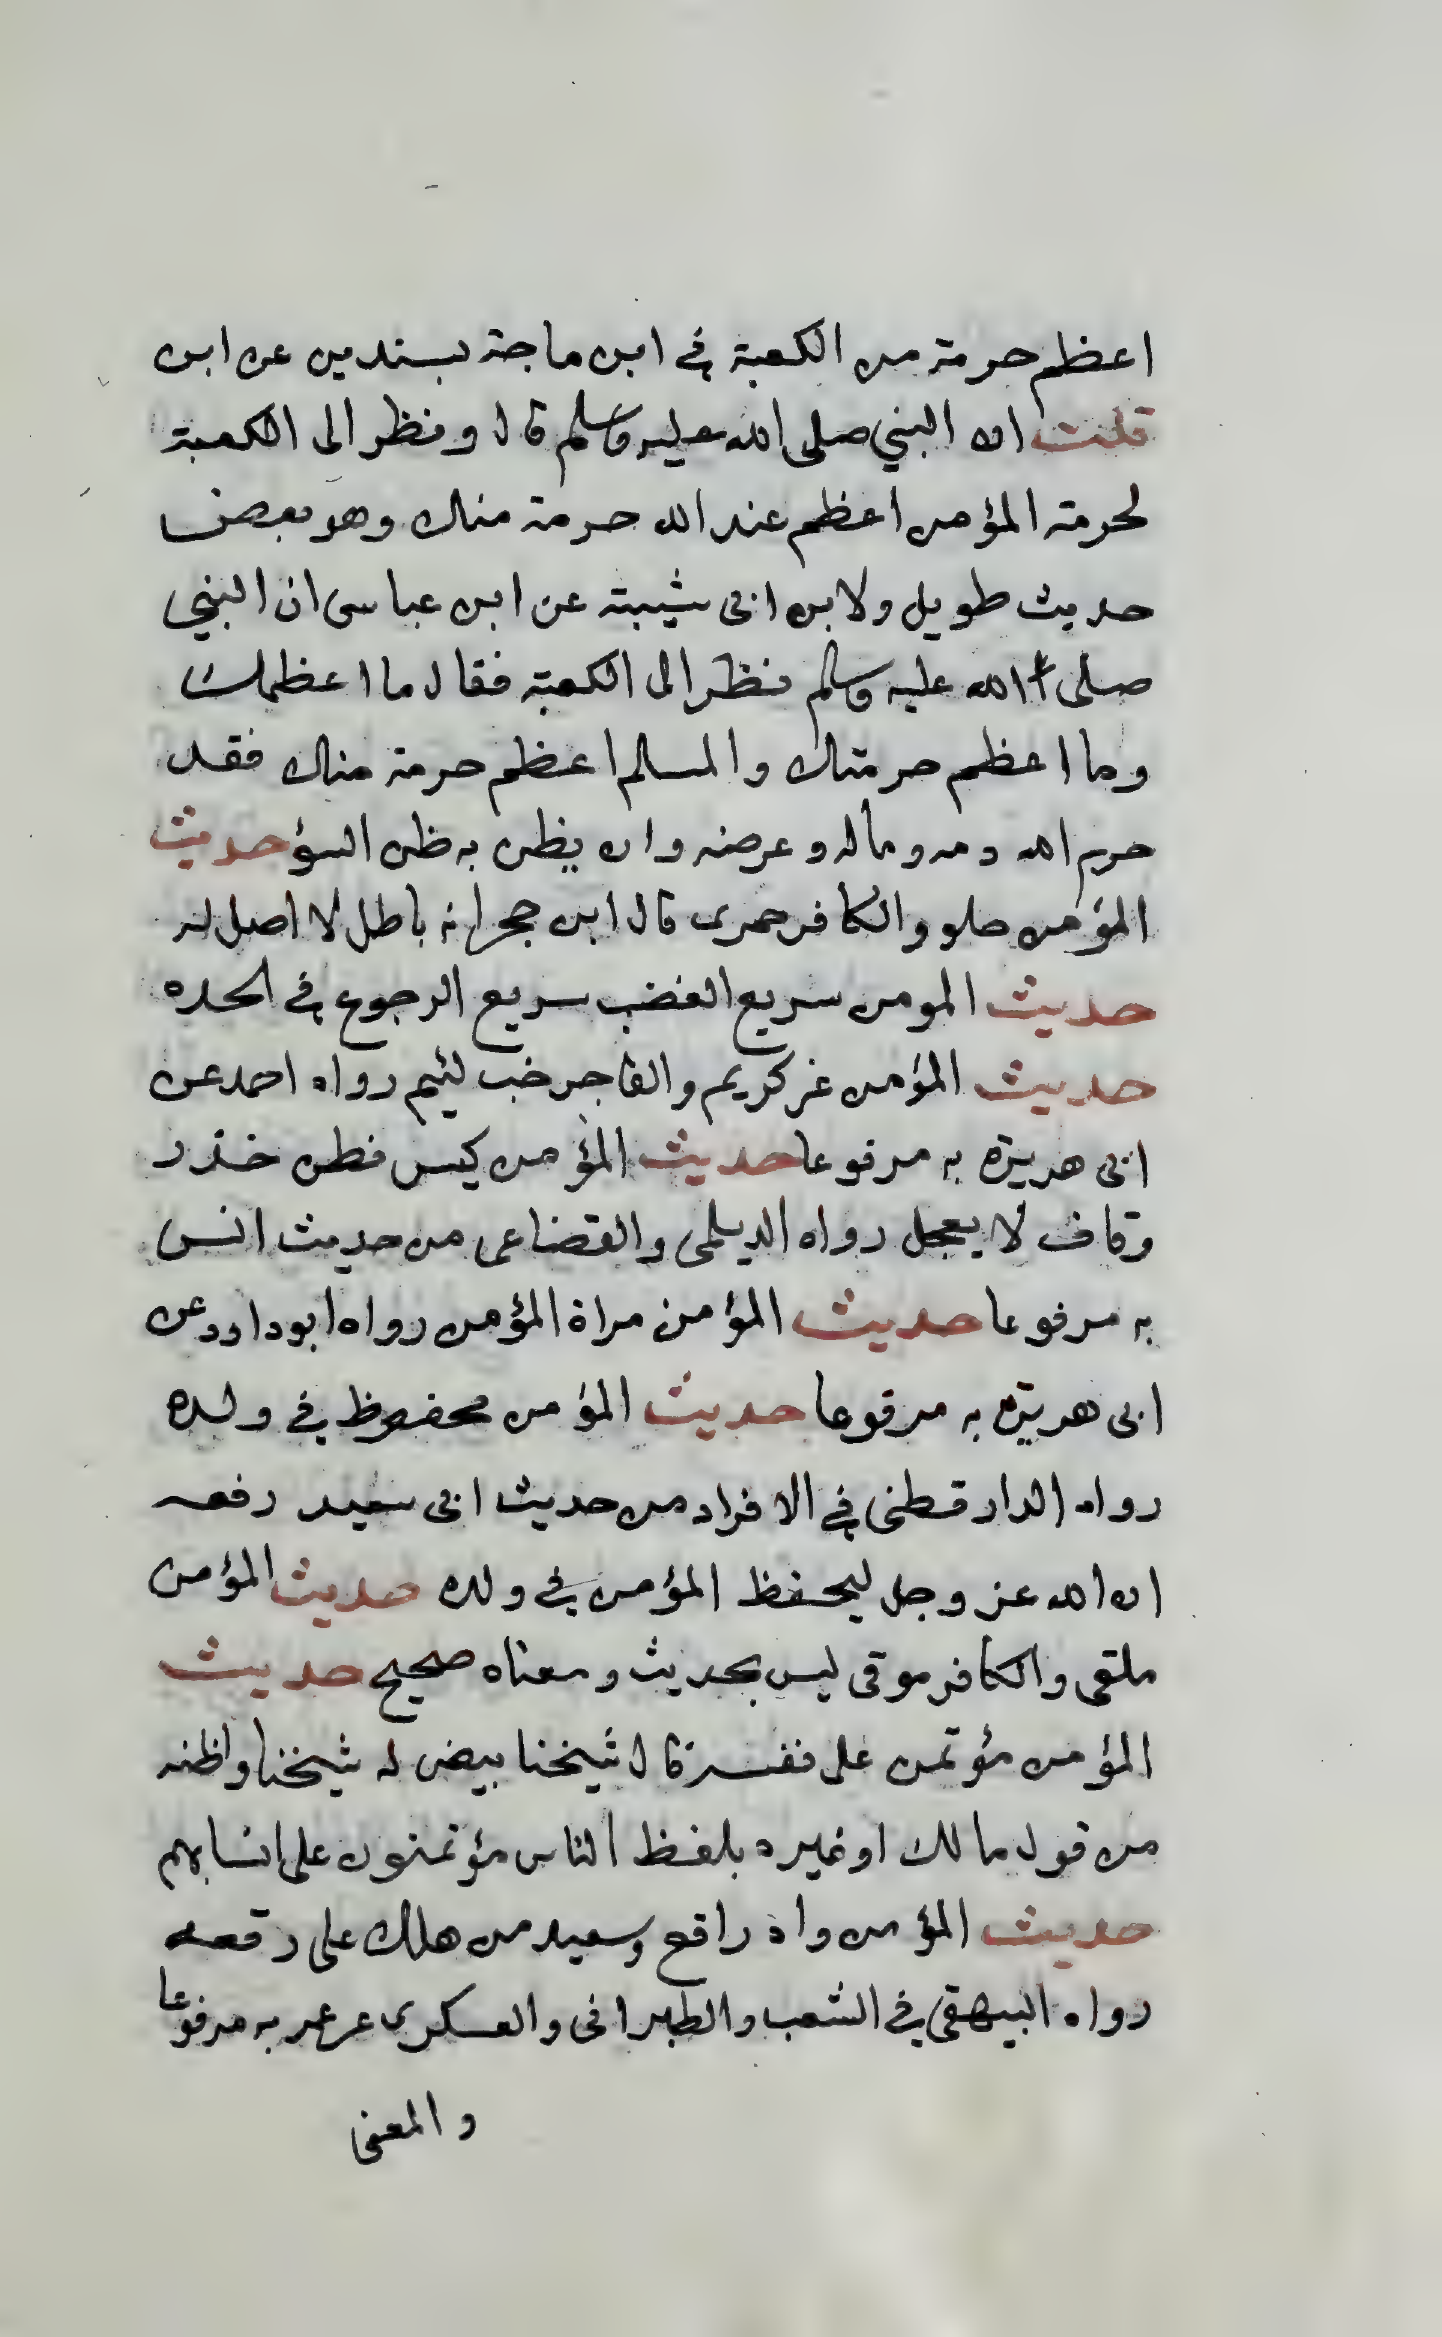 اعظم حرمة من الكعبة في ابن ماجة بسندين عن ابن
قلت ان النبي صلى الله عليه وسلم قال ونظر الى الكعبة
لحرمة المؤمن اعظم عند الله حرمة منك وهو بعض
حديث طويل ولابن ابي شيبة عن ابن عباس ان النبي
صلى الله عليه وسلم نظر الى الكعبة فقال ما اعظمك
وما اعظم حرمتك والمسلم اعظم حرمة منك فقد
حرم الله دمه وماله وعرضه وان يظن به ظن السؤ حديث
المؤمن حلو والكافر خمري قال ابن حجر انه باطل لا اصل له
حديث المومن سريع الغضب سريع الرجوع في الحده
حديث المؤمن غر كريم والفاجر خب لئيم رواه احمد عن
ابي هريرة به مرفوعا حديث المؤمن كيس فطن حذر
وقاف لا يعجل رواه الديلمي والقضاعي من حديث انس
به مرفوعا حديث المؤمن مراة المؤمن رواه ابو داود عن
ابي هريرة به مرفوعا حديث المؤمن محفوظ في ولده
رواه الدار قطني في الافراد من حديث ابي سعيد رفعه
ان الله عز وجل ليحفظ المؤمن في ولده حديث المؤمن
ملقى والكافر موقى ليس بحديث ومعناه صحيح حديث
المؤمن مؤتمن على نفسه قال شيخنا بيض له شيخنا واظنه
من قول مالك او غيره بلفظ الناس مؤتمنون على انسابهم
حديث المؤمن واه راقع وسعيد من هلك على رقعه
رواه البيهقي في الشعب والطبراني والعسكري عن عمر به مرفوعا
والمعنى